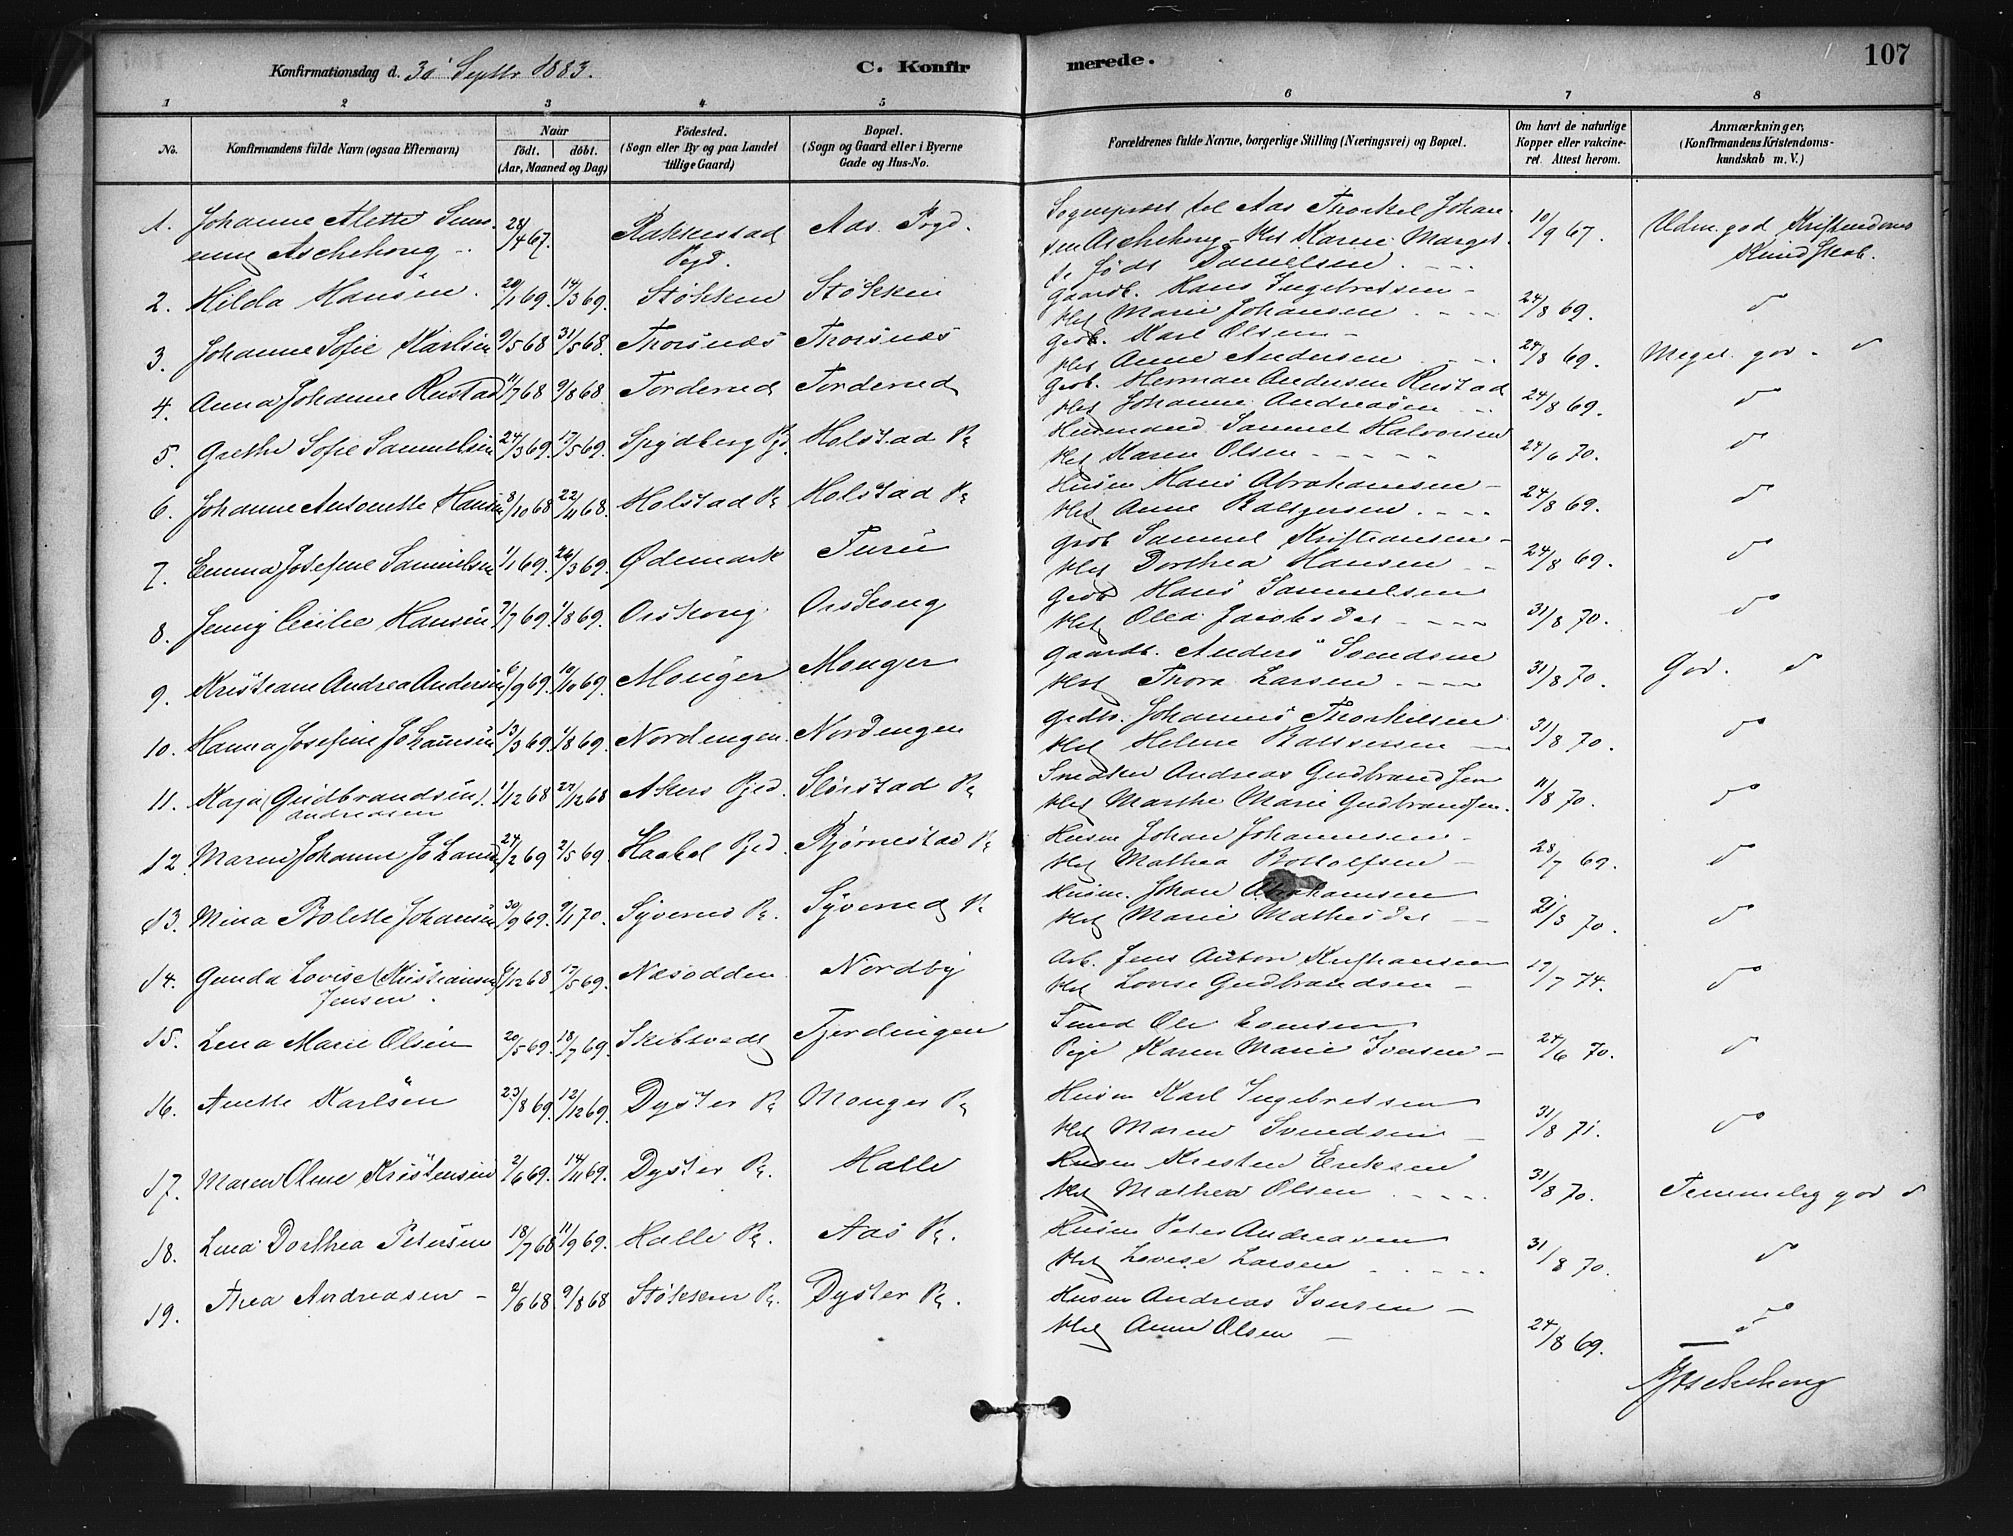 Konfirmationsdag d. 30 Septbr 1883.
C. Konfir
merede.
107
1 2 3 4 5 6 7 8
No.
Konfirmandens fulde Navn (ogsaa Efternavn)
Naar
födt. döbt.
(Aar, Maaned og Dag)
Födested.
(Sogn eller By og paa Landet
tillige Gaard)
Bopæl.
(Sogn og Gaard eller i Byerne
Gade og Hus-No.
Forældrenes fulde Navne, borgerlige Stilling (Næringsvei) og Bopæl.
Om havt de naturlige
Kopper eller vakcine-
ret. Attest herom.
Anmærkninger,
(Konfirmandens Kristendoms-
kundskab m. V.)
1. Johanne Alette 28/4 67. Rakkestad Aas Prgd. Sogneprest til Aas Thorkel Johan- 10/9 67. Udm. god Kristendoms
Aschehoug Pgd. sen Aschehoug Hst Karen Marget- Kundskab.
te født Danielsen
2. Hilda Hansen. 20/1 69. 14/3 69. Støkken Støkken Gaardb. Hans Ingebretsen
Hst Marie Johansen 24/8 69. do
3. Johanne Sofie Karlsen 9/5 68 31/5 68. Thorsnæs Thorsnæs Gdb. Karl Olsen
Hst Anne Andersen 24/8 69. Meget god do
4. Anna Johanne Rustad 11/7 68 9/8 68. Torderud Torderud Gdb. Herman Andersen Rustad
Hst Johanne Andreasen 24/8 69. do
5. Grethe Sofie Samuelsen 24/3 69. 17/5 69. Spydberg Pgd. Holstad Pe Husmand Samuel Halvorsen
Hst Karen Olsen 24/6 70. do
6. Johanne Antonette Hansen 8/10 68 22/11 68. Holstad Pe Holstad Pe Husm Hans Abrahamsen
Hst Anne Baltzersen 24/8 69. do
7. Emma Josefine Samuelsen 1/1 69. 26/3 69. Ødemark Turu Gdb Samuel Kristiansen
Hst Dorthea Hansen 24/8 69. do
8. Jenny Cecilie Hansen 7/7 69. 1/8 69. Orskoug Orskoug Gdb Hans Samuelsen
Hst Olea Jacobsdat 31/8 70. do
9. Kristiane Andrea Andersen 6/9 69. 10/10 69. Monger Monger Gaardb. Anders Svendsen
Hst Thora Larsen 31/8 70. God. do
10. Hanna Josefine Johansen 13/3 69. 1/8 69. Nordengen Nordengen Gdb. Johannes Thorkilsen
Hst Helene Baltsersen 31/8 70. do
11. Kaja (Gudbrandsen) 1/12 68 27/12 68 Akers Pgd. Slørstad Pe Smeden Andreas Gudbrandsen
Andreasen Hst Marthe Marie Gudbrandsen. 11/8 70. do
12. Maren Johanne Johans 24/2 69 2/5 69. Haabøl Pgd. Bjørnestad Pe Husm Johan Johannesen
Hst Mathea Botolfsen 28/7 69. do
13. Mina Bolette Johansen 30/9 69. 9/1 70. Syverud Pe. Syverud Pe Husm. Johan Abrahamsen
Hst Marie Mathisdat 21/8 70. do
14. Gunda Lovise (Kristiansen) 6/12 68 17/5 69. Næsodden Nordby Arb. Jens Anton Kristiansen
Jensen. Hst Lovise Gudbrandsen 17/7 74. do
15. Lena Marie Olsen 20/5 69. 18/7 69. Skibtvedt Fjerdingen Ole Evensen
Pige Karen Marie Iversen 24/6 70. do
16. Anette Karlsen 23/8 69. 12/12 69. Dyster Pe Monger Pe Husm Karl Ingebretsen
Hst Maren Svendsen 31/8 71. do
17. Maren Oline Kristensen 2/6 69. 14/11 69. Dyster Pe. Holle Husm Kristen Eriksen
Hst Mathea Olsen 31/8 70. Temmelig god do
18. Lina Dorthea Petersen 18/7 68 11/9 69. Holle Pe. Aas Pe. Husm Peter Andreasen
Hst Lovise Larsen 31/8 70. do
19. Thea Andreasen 2/6 68. 9/8 68 Støkken Pe. Dyster Pe. Husm Andreas Iversen
Hst Anne Olsen 24/8 69. do
Aschehoug